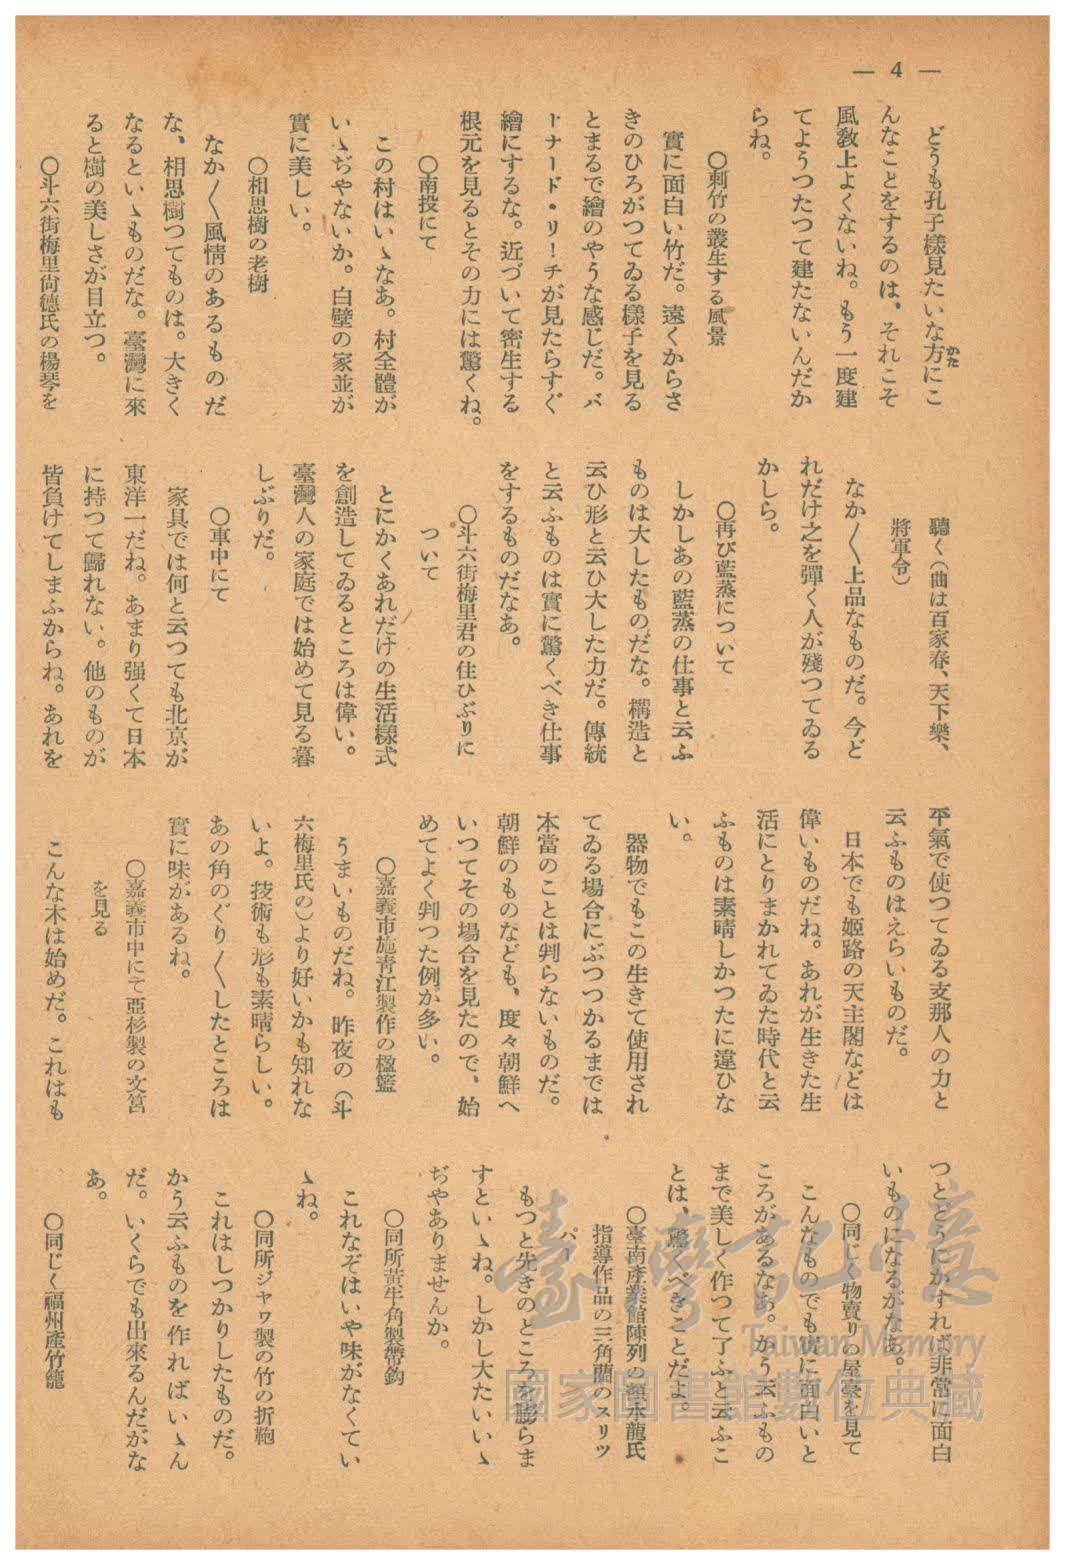 — 4 —
どうも孔子樣見たいな方にこ
かた
んなことをするのは、それこそ
風敎上よくないね。もう一度建
てようつたつて建たないんだか
らね。
〇刺竹の叢生する風景
實に面白い竹だ。遠くからさ
きのひろがつてゐる樣子を見る
とまるで繪のやうな感じだ。バ
ーナード・リーチが見たらすぐ
繪にするな。近づいて密生する
根元を見るとその力には驚くね。
〇南投にて
この村はいゝなあ。村全體が
いゝぢやないか。白壁の家並が
實に美しい。
〇相思樹の老樹
なか〱風情のあるものだ
な、相思樹つてものは。大きく
なるといゝものだな。臺灣に來
ると樹の美しさが目立つ。
〇斗六街梅里尙德氏の楊琴を
聽く（曲は百家春、天下樂、
將軍令）
なか〱上品なものだ。今ど
れだけ之を彈く人が殘つてゐる
かしら。
〇再び藍蒸について
しかしあの藍蒸の仕事と云ふ
ものは大したものだな。構造と
云ひ形と云ひ大した力だ。傳統
と云ふものは實に驚くべき仕事
をするものだなあ。
〇斗六街梅里君の住ひぶりに
ついて
とにかくあれだけの生活樣式
を創造してゐるところは偉い。
臺灣人の家庭では始めて見る暮
しぶりだ。
〇車中にて
家具では何と云つても北京が
東洋一だね。あまり强くて日本
に持つて歸れない。他のものが
皆負けてしまふからね。あれを
平氣で使つてゐる支那人の力と
云ふものはえらいものだ。
日本でも姬路の天主閣などは
偉いものだね。あれが生きた生
活にとりまかれてゐた時代と云
ふものは素晴しかつたに違ひな
い。
器物でもこの生きて使用され
てゐる場合にぶつつかるまでは
本當のことは判らないものだ。
朝鮮のものなども、度々朝鮮へ
いつてその場合を見たので、始
めてよく判つた例が多い。
〇嘉義市施靑江製作の楹籃
うまいものだね。昨夜の（斗
六梅里氏の）より好いかも知れな
いよ。技術も形も素晴らしい。
あの角のぐり〱したところは
實に味があるね。
〇嘉義市中にて亞杉製の文筥
を見る
こんな木は始めだ。これはも
つとどうにかすれば非常に面白
いものになるがなあ。
〇同じく物賣りの屋臺を見て
こんなものでも實に面白いと
ころがあるなあ。かう云ふもの
まで美しく作つて了ふと云ふこ
とは、驚くべきことだよ。
〇臺南產業館陳列の顏水龍氏
指導作品の三角藺のスリツ
パー
もつと先きのところを膨らま
すといゝね。しかし大たいいゝ
ぢやありませんか。
〇同所黃牛角製帶鈎
これなぞはいや味がなくてい
ゝね。
〇同所ジャワ製の竹の折鞄
これはしつかりしたものだ。
かう云ふものを作ればいゝん
だ。いくらでも出來るんだがな
あ。
〇同じく福州產竹籠
臺灣記憶
Taiwan Memory
國家圖書館數位典藏